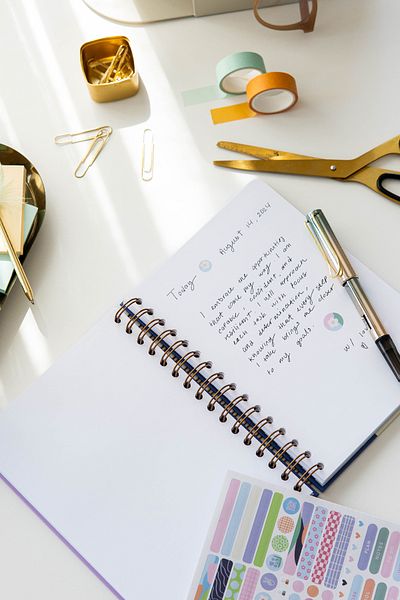 August 14, 2024
Today
I embrace the opportunities
that come my way. I am
positive, confident, and
resilient. I will approach
each task with focus
and determination,
knowing that every step
I take brings me closer
to my goals.
w/